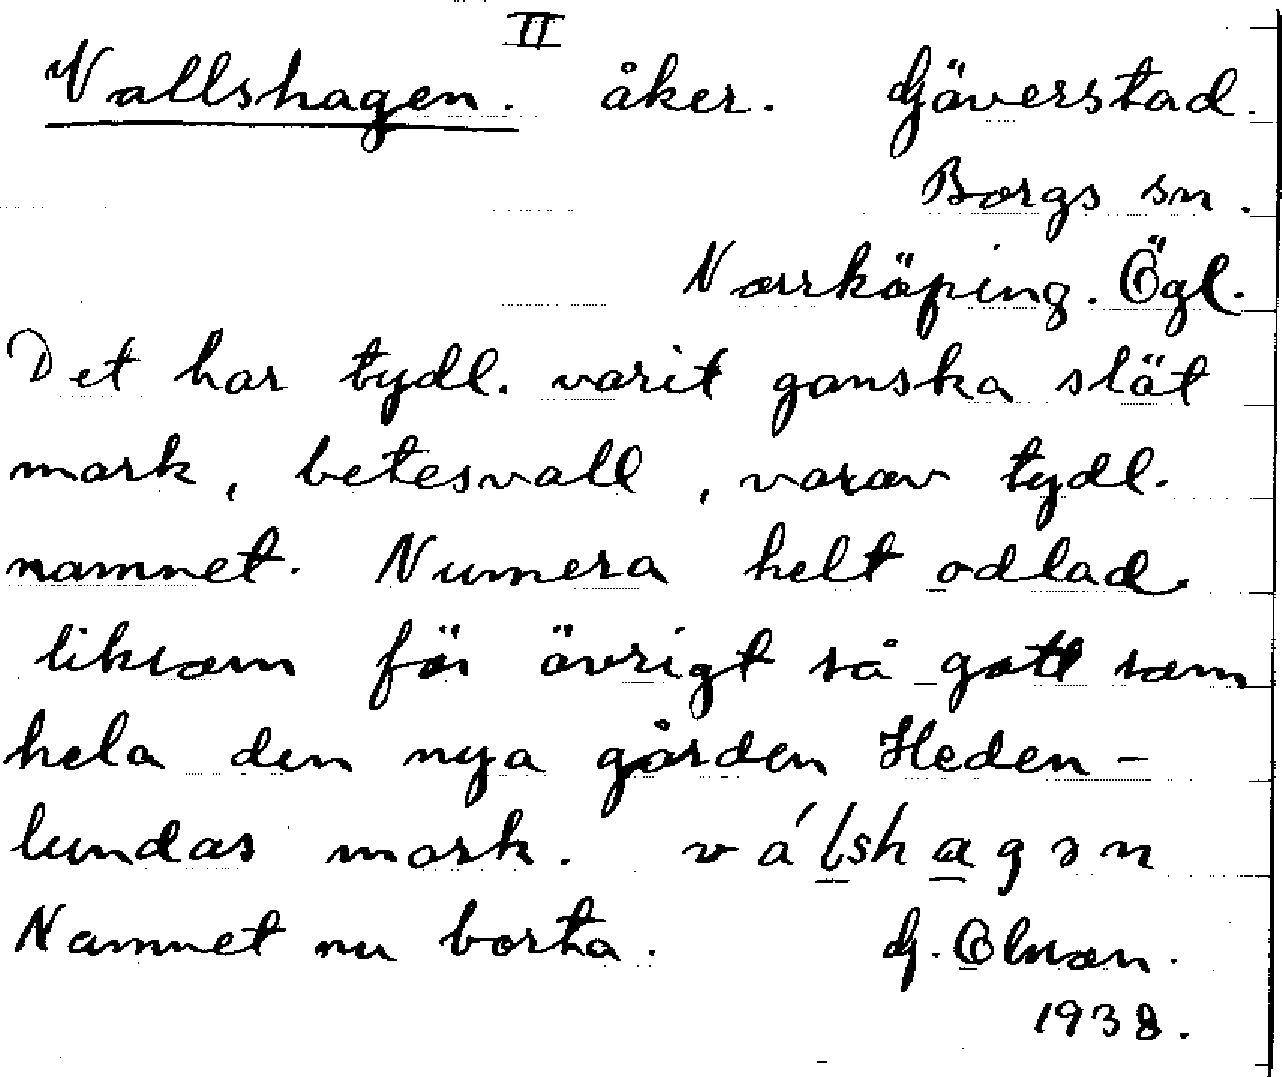 II
Vallshagen. åker. Gäverstad.
Borgs sn.
Norrköping. Ögl.
Det har tydl. varit ganska slät
mark, betesvall, varav tydl.
namnet. Numera helt odlad
liksom för övrigt så gott som
hela den nya gården Heden-
lundas mark. válshagən
Namnet nu borta. G.
1938.